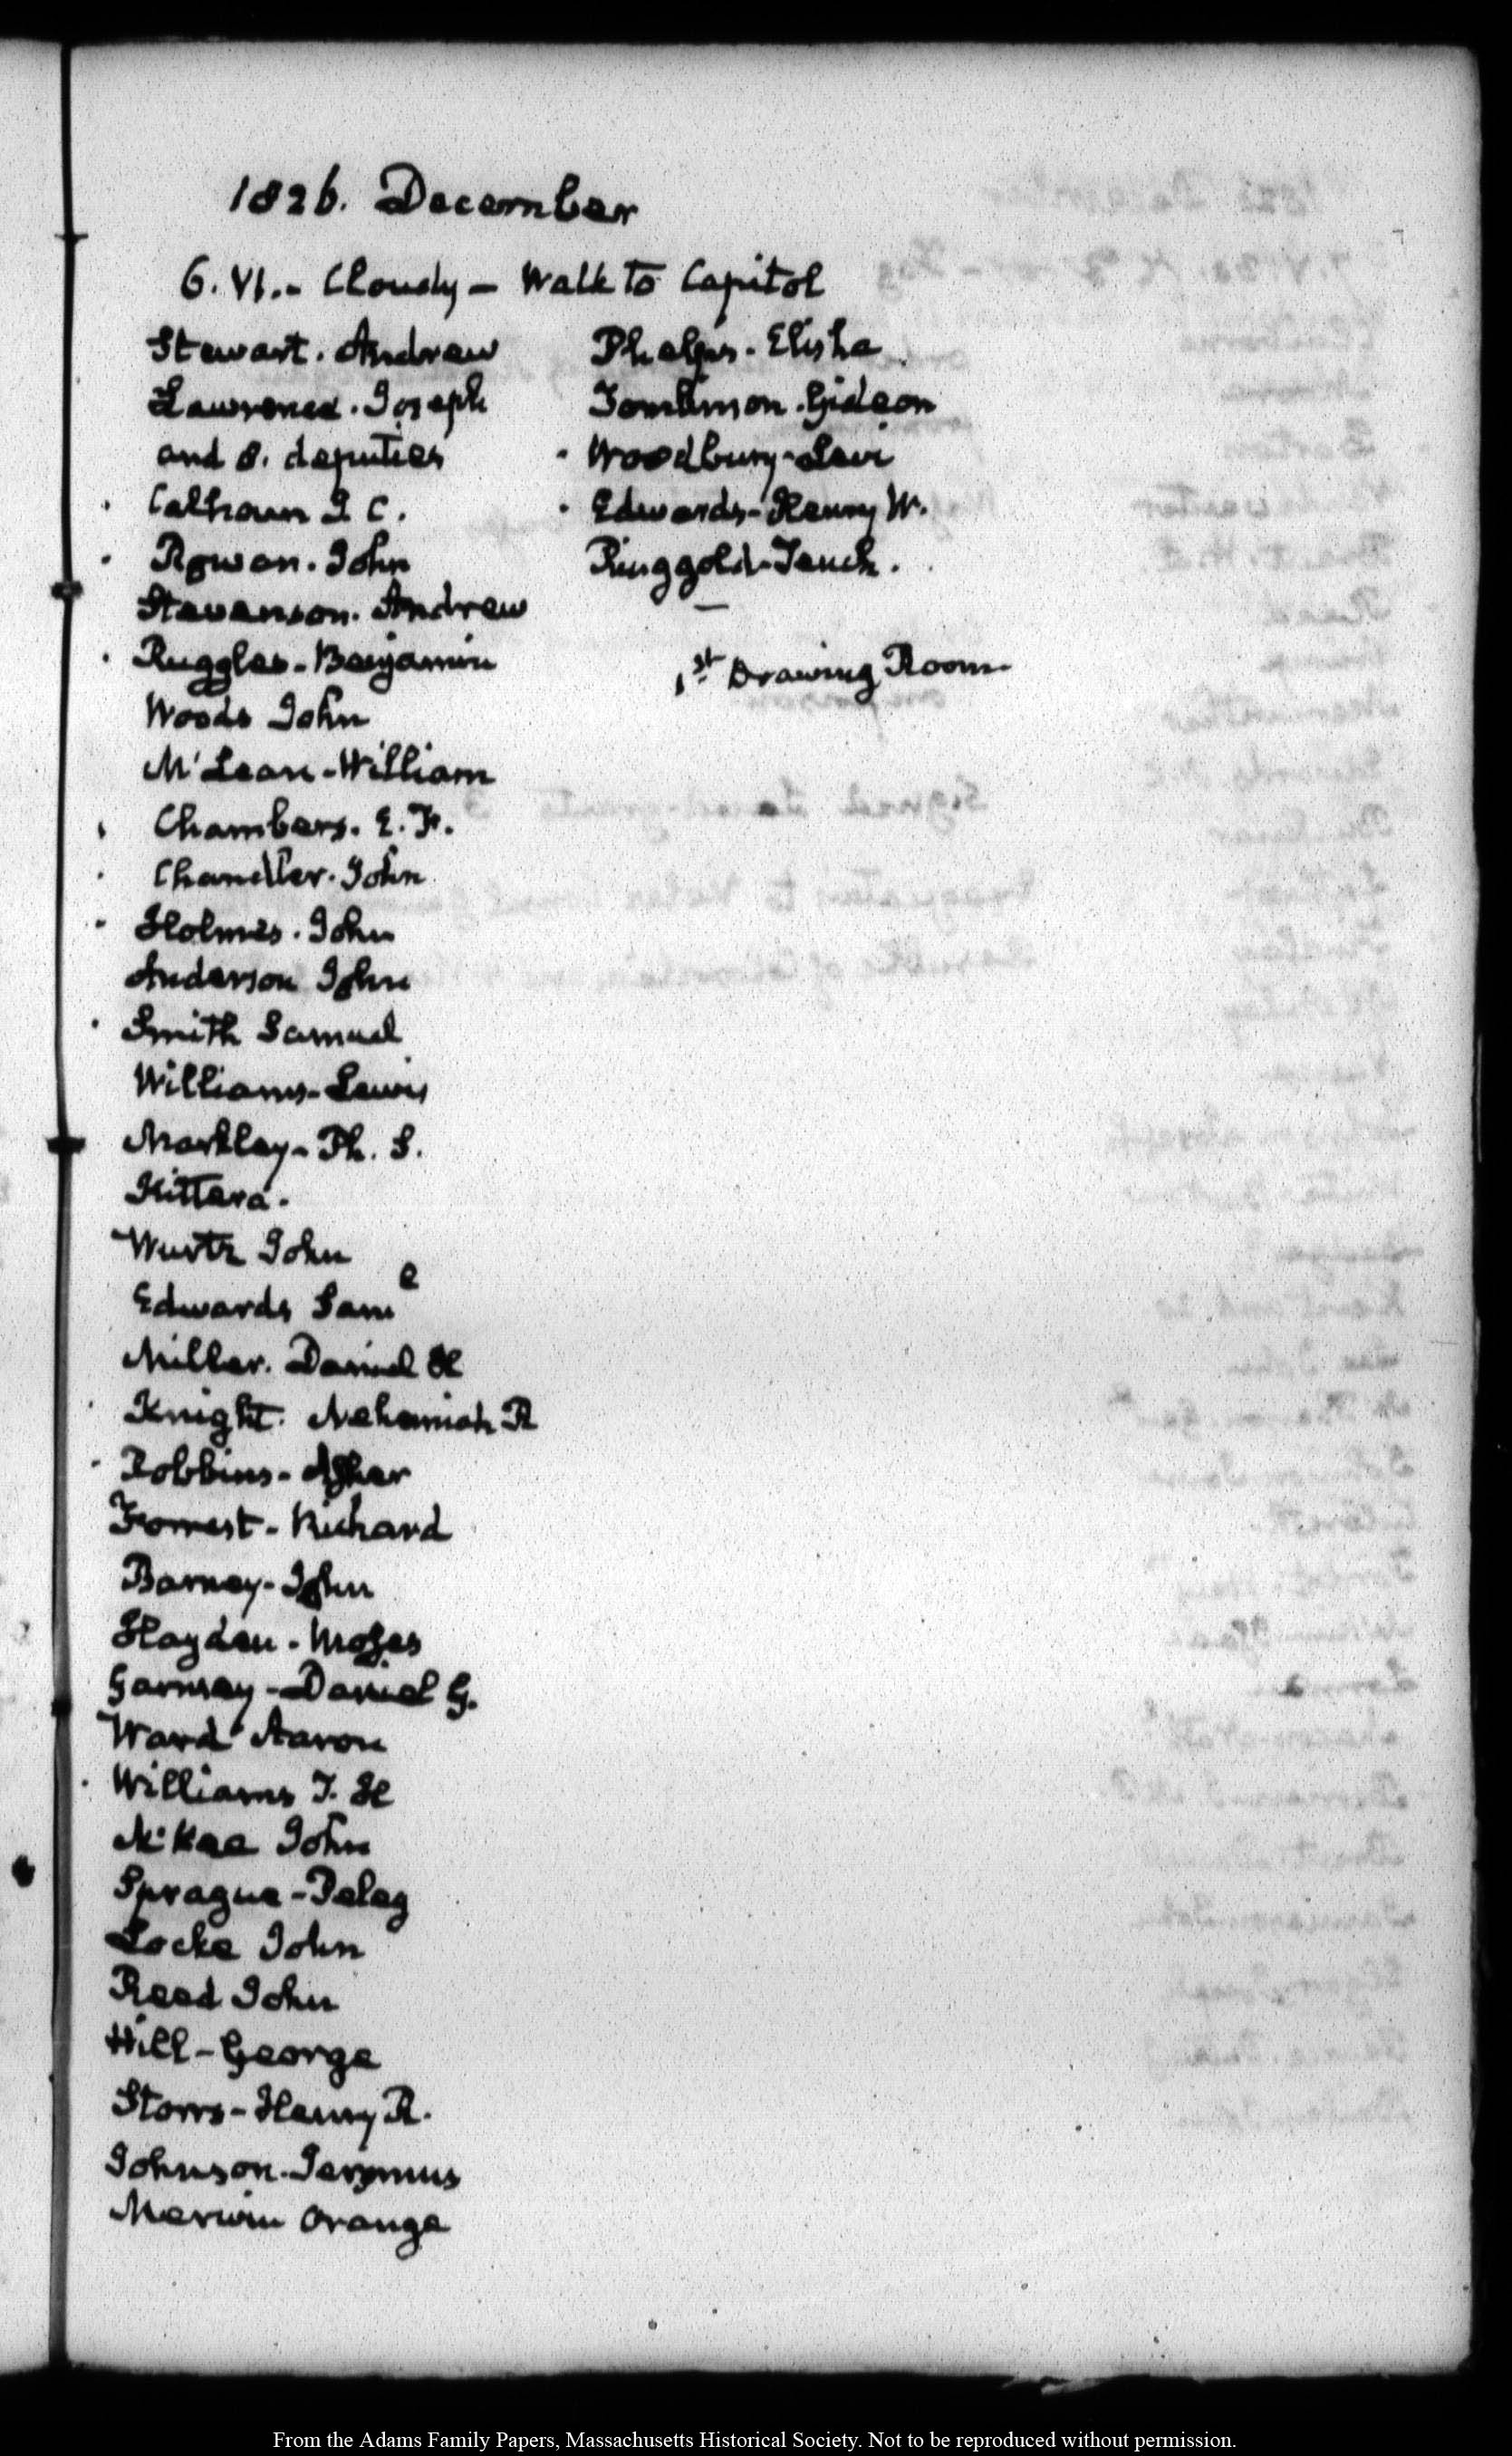 1826. December
6. VI. - Cloudy - Walk to Capitol
Stewart. Andrew
Lawrence. Joseph
and 8. deputies
· Calhoun J C.
· Rowan. John
Stevenson. Andrew
· Ruggles - Benjamin
Woods John
McLean - William
· Chambers. E. F.
· Chandler. John
· Holmes. John
Anderson John
· Smith Samuel
Williams - Lewis
Markley - Ph. S.
Kittera.
Wurtz John
Edwards Saml
Miller. Daniel H
· Knight. Nehemiah R
· Robbins - Asher
Forrest - Richard
Barney - John
Hayden - Moses
Garnsey - Daniel G.
Ward Aaron
· Williams T. H
McKee John
Sprague - Peleg
Locke John
Reed John
Hill - George
Storrs - Henry R.
Johnson - Jeromus
Merwin Orange
Phelps - Elisha
Tomlinson. Gideon
· Woodbury - Levi
· Edwards - Henry W.
Ringgold - Tench.
1st Drawing Room
From the Adams Family Papers, Massachusetts Historical Society. Not to be reproduced without permission.